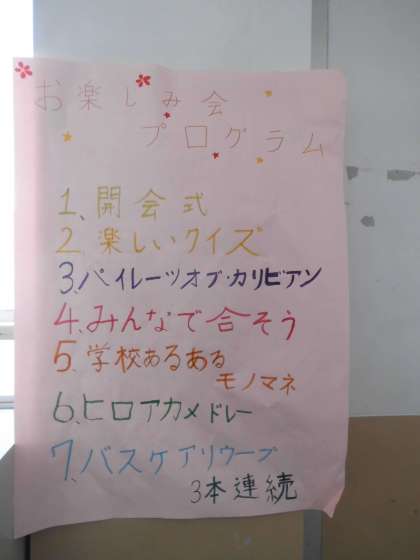 お楽しみ会
プログラム
1、開会式
2、楽しいクイズ
3、パイレーツオブ・カリビアン
4、みんなで合そう
5、学校あるある
モノマネ
6、ヒロアカメドレー
7、バスケアリウープ
3本連続